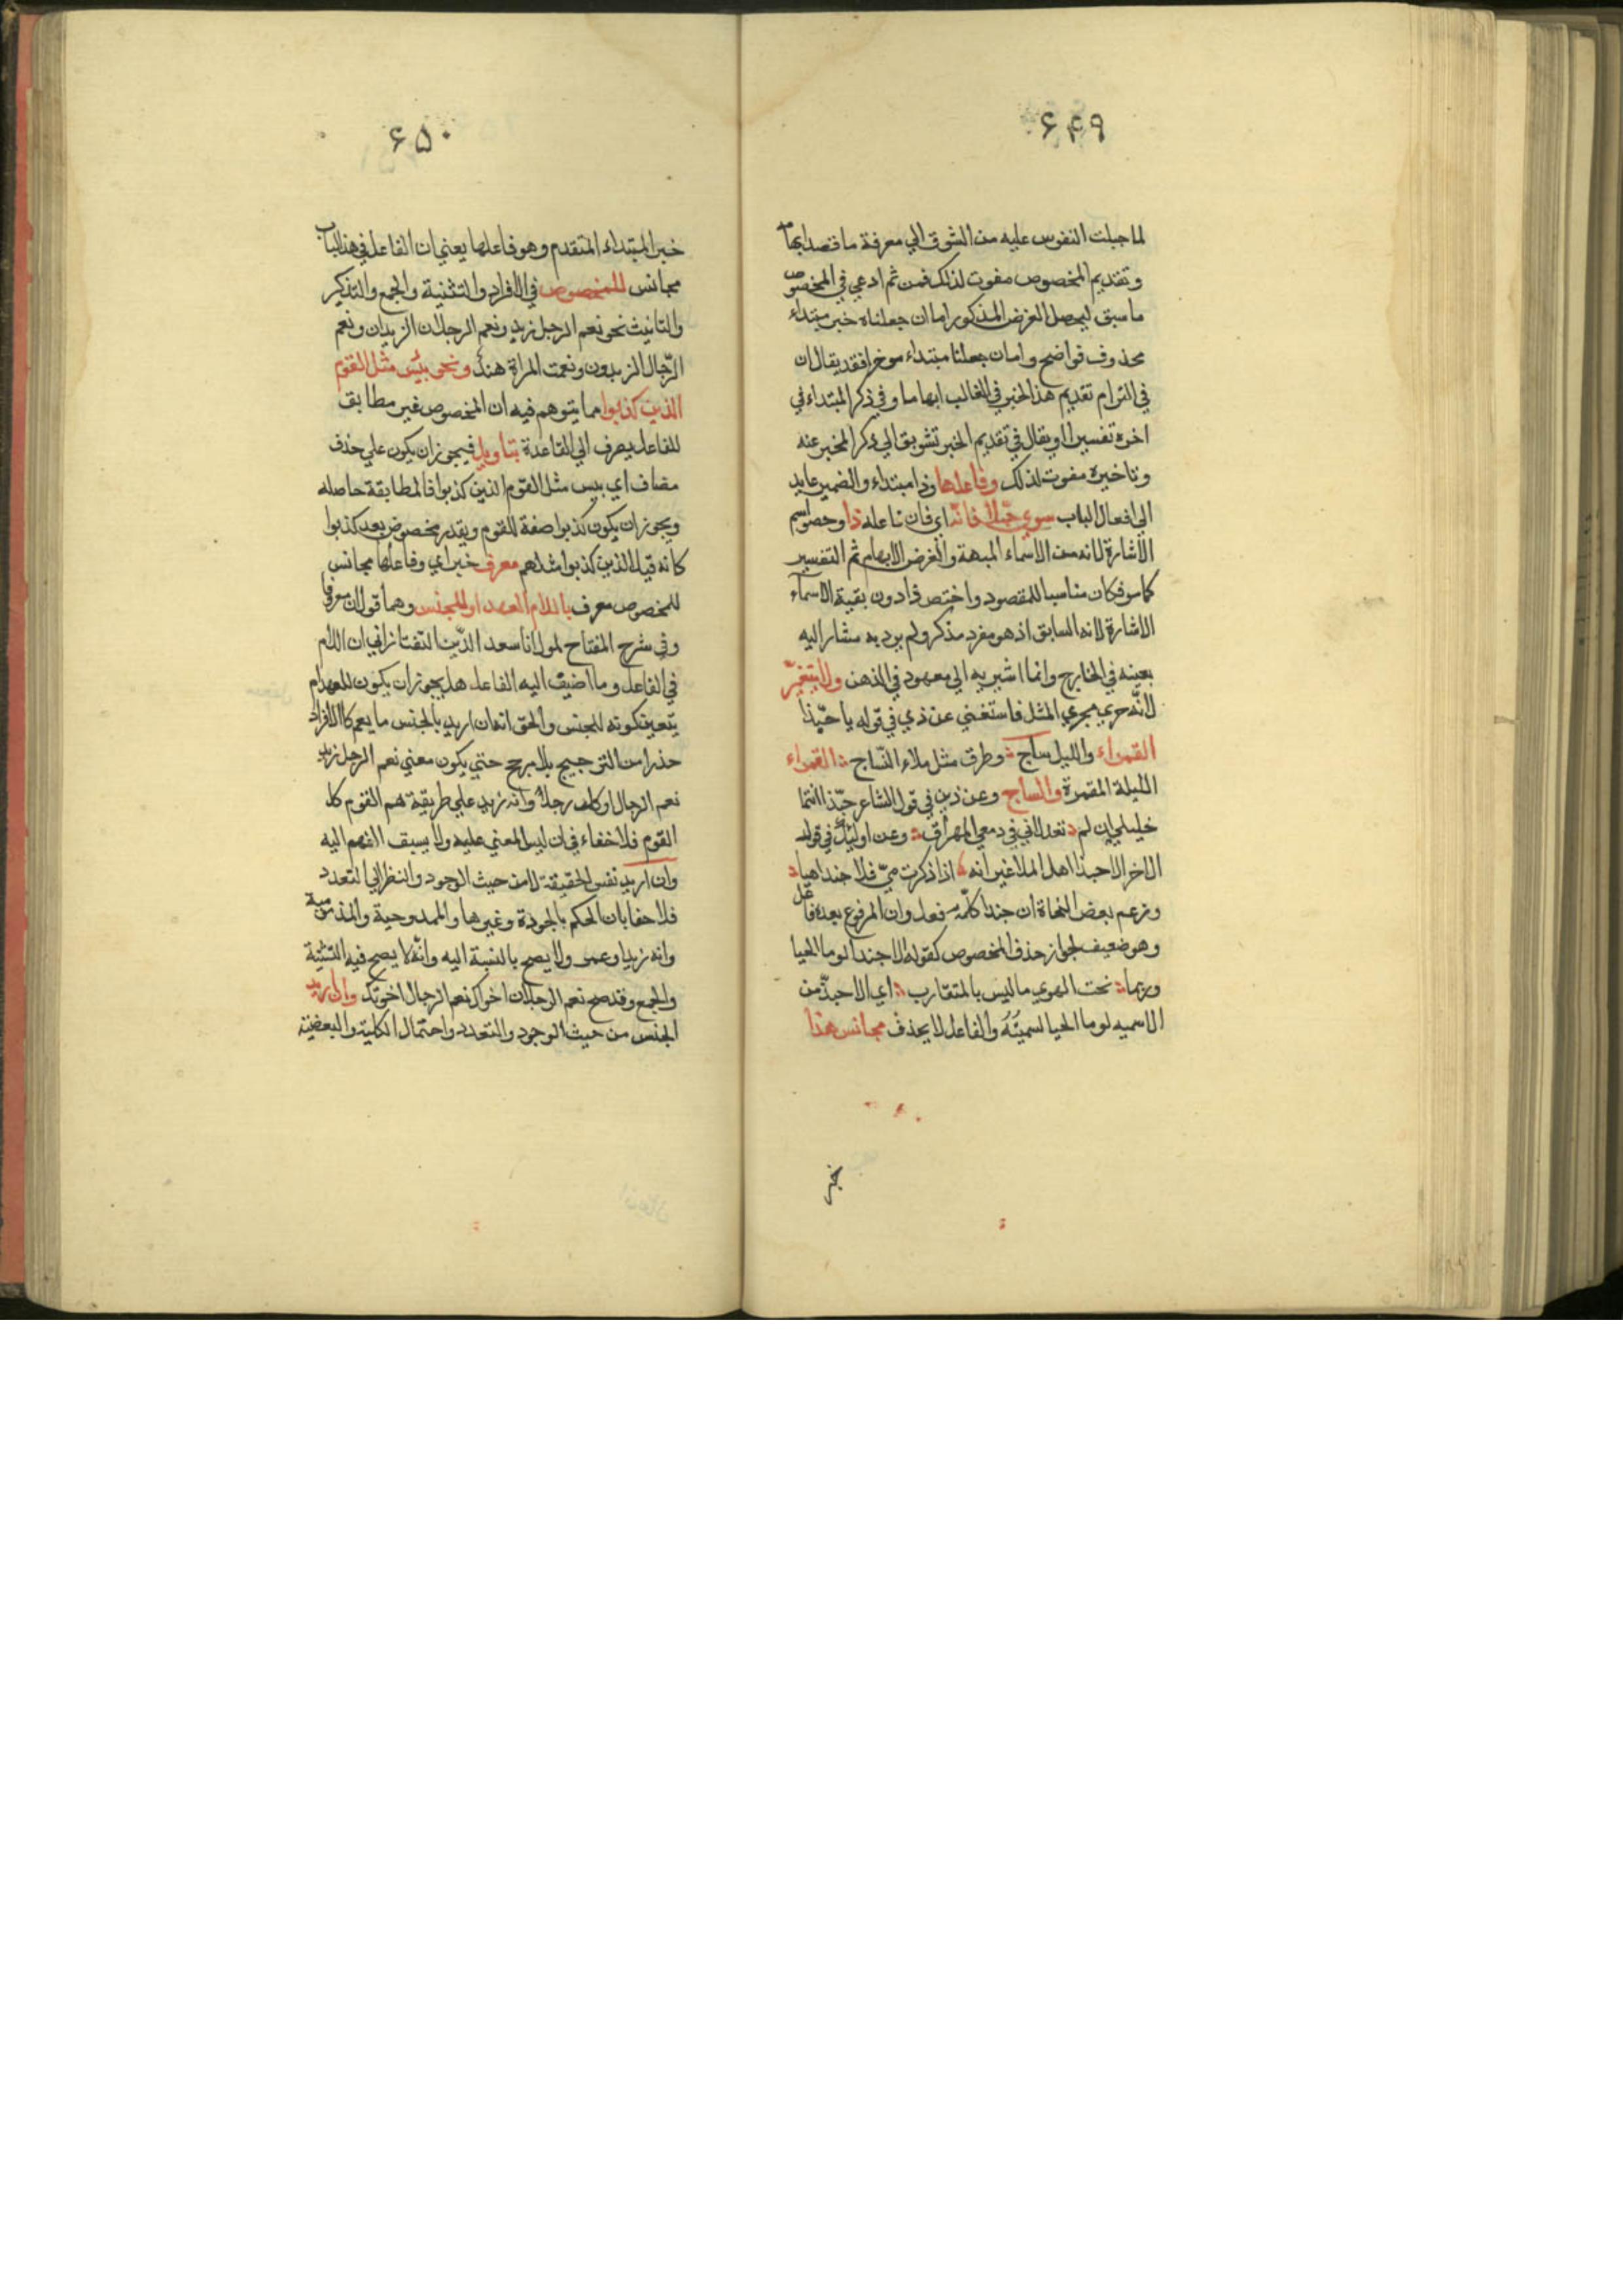 ۶۴۹
لما جبلت النفوس عليه من الشوق الي معرفة ما قصد ابهامه
وتقديم المخصوص مفوت لذلك فمن ثم ادعي في المخصوص
ما سبق ليحصل الغرض المذكور اما ان جعلناه خبر مبتداء
محذوف فواضح واما ان جعلنا مبتداء موخرا فقد يقال ان
في التزام تقديم هذا الخبر في الغالب ابهاما وفي ذكر المبتداء في
اخره تفسيرا او يقال في تقديم الخبر تشويق الي ذكر المخبر عنه
وتاخيره مفوت لذلك وفاعلها وذا مبتداء والضمير عايد
الي افعال الباب سوي حبّذا فانّه اي فان فاعله ذا وخصوا اسم
الاشارة لانه من الاسماء المبهمة والغرض الابهام ثم التفسير
كما سر فكان مناسبا للمقصود واختص ذا دون بقية الاسماء
الاشارة لانه السابق اذ هو مفرد مذكر ولم يرد به مشار اليه
بعينه في الخارج وانما اشير به الي معهود في الذهن ولا يتغيّر
لانّه جري مجري المثل فاستغني عن ذي في قوله يا حبّذا
القمراء والليل ساج وطرق مثل ملاء النّساج القمراء
الليلة المقمرة والساج وعن ذين في قول الشاعر حبّذا انتما
خليلي ان لم تعذلاني في دمعي المهراق وعن اوليك في قوله
الاخر الا حبذا اهل الملا غير انه اذا ذكرت ميّ فلا حبذا هيا
وزعم بعض النحاة ان حبذا كلمة فعل وان المرفوع بعده فاعل
وهو ضعيف لجواز حذف المخصوص كقوله الا حبذا لو ما الحيا
وربما نحت الهوي ما ليس بالمتقارب اي الا حبذّ من
الاسميه لو ما الحيا لسميته والفاعل لا يحذف مجانس هذا
خبر
۶۵۰
خبر المبتداء المتقدم وهو فاعلها يعني ان الفاعل في هذا الباب
مجانس للمخصوص في الافراد والتثنية والجمع والتذكير
والتانيث نحو نعم الرجل زيد ونعم الرجلان الزيدان ونعم
الرّجال الزيدون ونعمت المراة هند ونحو بئس مثل القوم
الذين كذبوا مما يتوهم فيه ان المخصوص غير مطابق
للفاعل يصرف الي القاعدة بتاويل فيجوز ان يكون علي حذف
مضاف اي بيس مثل القوم الذين كذبوا فالمطابقة حاصله
ويجوز ان يكون كذبوا صفة للقوم ويقدر مخصوص بعد كذبوا
كانه قيل الذين كذبوا مثلهم معرف خبر اي وفاعلها مجانس
للمخصوص معرف باللام العهد او للجنس وهما قولان معرفا
وفي شرح المفتاح لمولانا سعد الدّين التفتازاني ان اللام
في الفاعل وما اضيف اليه الفاعل هل يجوز ان يكون للعهد ام
يتعين كونه للجنس والحق انه ان اريد بالجنس ما يعم كل الافراد
حذرا من الترجيح بلا مرجح حتي يكون معني نعم الرجل زيد
نعم الرجال او كلف رجلا وانه زيد علي طريقة هم القوم كل
القوم فلا خفاء في ان ليس المعني عليه ولا يسبق الفهم اليه
وان اريد نفس الحقيقة لا من حيث الوجود والنظر الي التعدد
فلا خفا بان الحكم بالجودة وغيرها والممدوحية والمذمومية
وانه زيد او عمر ولا يصح بالنسبة اليه وانّه لا يصح فيه التثنية
والجمع وقد صح نعم الرجلان اخواك نعم الرجال اخوتك وان اريد
الجنس من حيث الوجود والتعدد واحتمال الكلية والبعضية